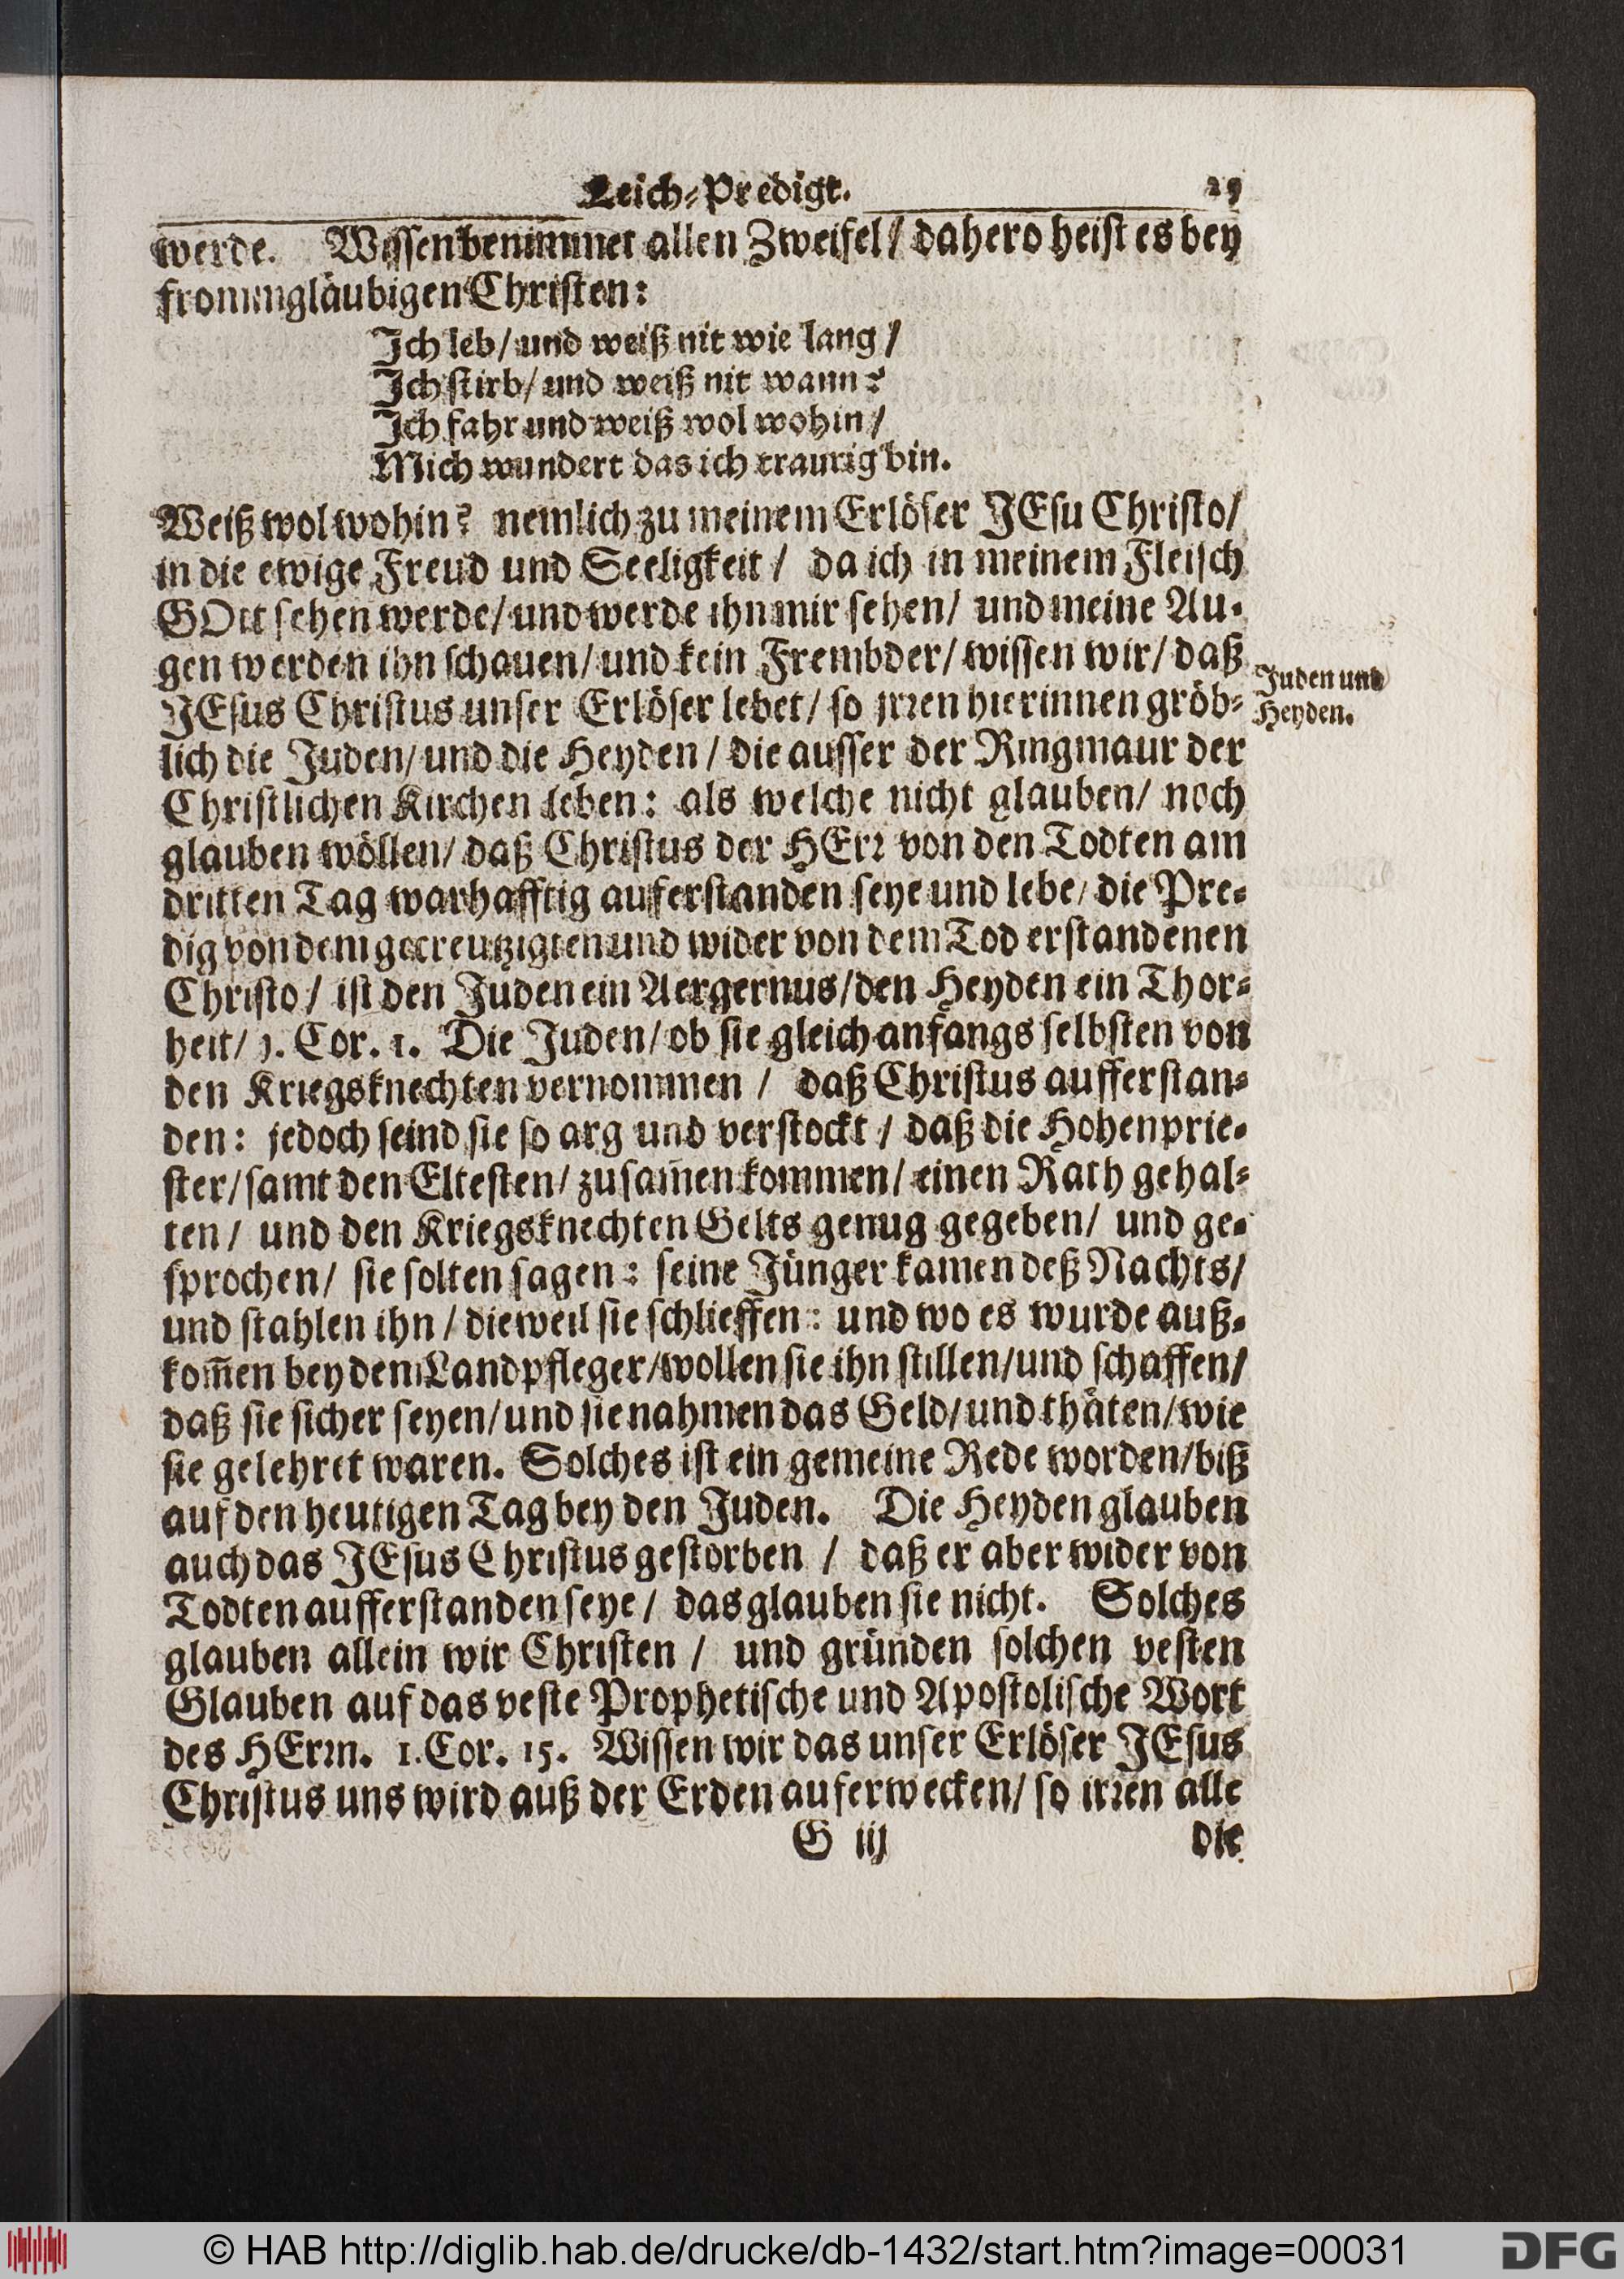 Leich-Predigt. 29
werde. Wissen benimmet allen Zweifel / dahero heist es bey
frommgläubigen Christen:
Ich leb / und weiß nit wie lang /
Ich stirb / und weiß nit wann?
Ich fahr und weiß wol wohin /
Mich wundert das ich traurig bin.
Weiß wol wohin? nemlich zu meinem Erlöser JEsu Christo /
in die ewige Freud und Seeligkeit / da ich in meinem Fleisch
GOtt sehen werde / und werde ihn mir sehen / und meine Au-
gen werden ihn schauen / und kein Frembder / wissen wir / daß
JEsus Christus unser Erlöser lebet / so jrren hierinnen gröb-
Juden und
Heyden.
lich die Juden / und die Heyden / die ausser der Ringmaur der
Christlichen Kirchen leben: als welche nicht glauben / noch
glauben wöllen / daß Christus der HErr von den Todten am
dritten Tag warhafftig auferstanden seye und lebe / die Pre-
dig von dem gecreutzigten und wider von dem Tod erstandenen
Christo / ist den Juden ein Aergernus / den Heyden ein Thor-
heit / 1. Cor. 1. Die Juden / ob sie gleich anfangs selbsten von
den Kriegsknechten vernommen / daß Christus aufferstan-
den: jedoch seind sie so arg und verstockt / daß die Hohenprie-
ster / samt den Eltesten / zusam̄en kommen / einen Rath gehal-
ten / und den Kriegsknechten Gelts genug gegeben / und ge-
sprochen / sie solten sagen: seine Jünger kamen deß Nachts /
und stahlen ihn / dieweil sie schlieffen: und wo es wurde auß-
kom̄en bey dem Landpfleger / wollen sie ihn stillen / und schaffen /
daß sie sicher seyen / und sie nahmen das Geld / und thäten / wie
sie gelehret waren. Solches ist ein gemeine Rede worden / biß
auf den heutigen Tag bey den Juden. Die Heyden glauben
auch das JEsus Christus gestorben / daß er aber wider von
Todten aufferstanden seye / das glauben sie nicht. Solches
glauben allein wir Christen / und gründen solchen vesten
Glauben auf das veste Prophetische und Apostolische Wort
des HErrn. 1. Cor. 15. Wissen wir das unser Erlöser JEsus
Christus uns wird auß der Erden auferwecken / so irren alle
G iij die
© HAB http://diglib.hab.de/drucke/db-1432/start.htm?image=00031
DFG